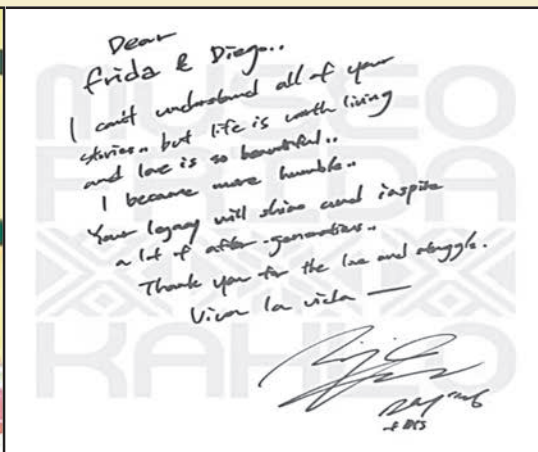 Dear
Frida & Diego..
I can't understand all of your
stories.. but life is worth living
and love is so beautiful..
I became more humble..
Your legacy will shine and inspire
a lot of after-generations..
Thank you for the love and struggle.
Viva la vida —
of BTS
MUSEO
FRIDA
KAHLO